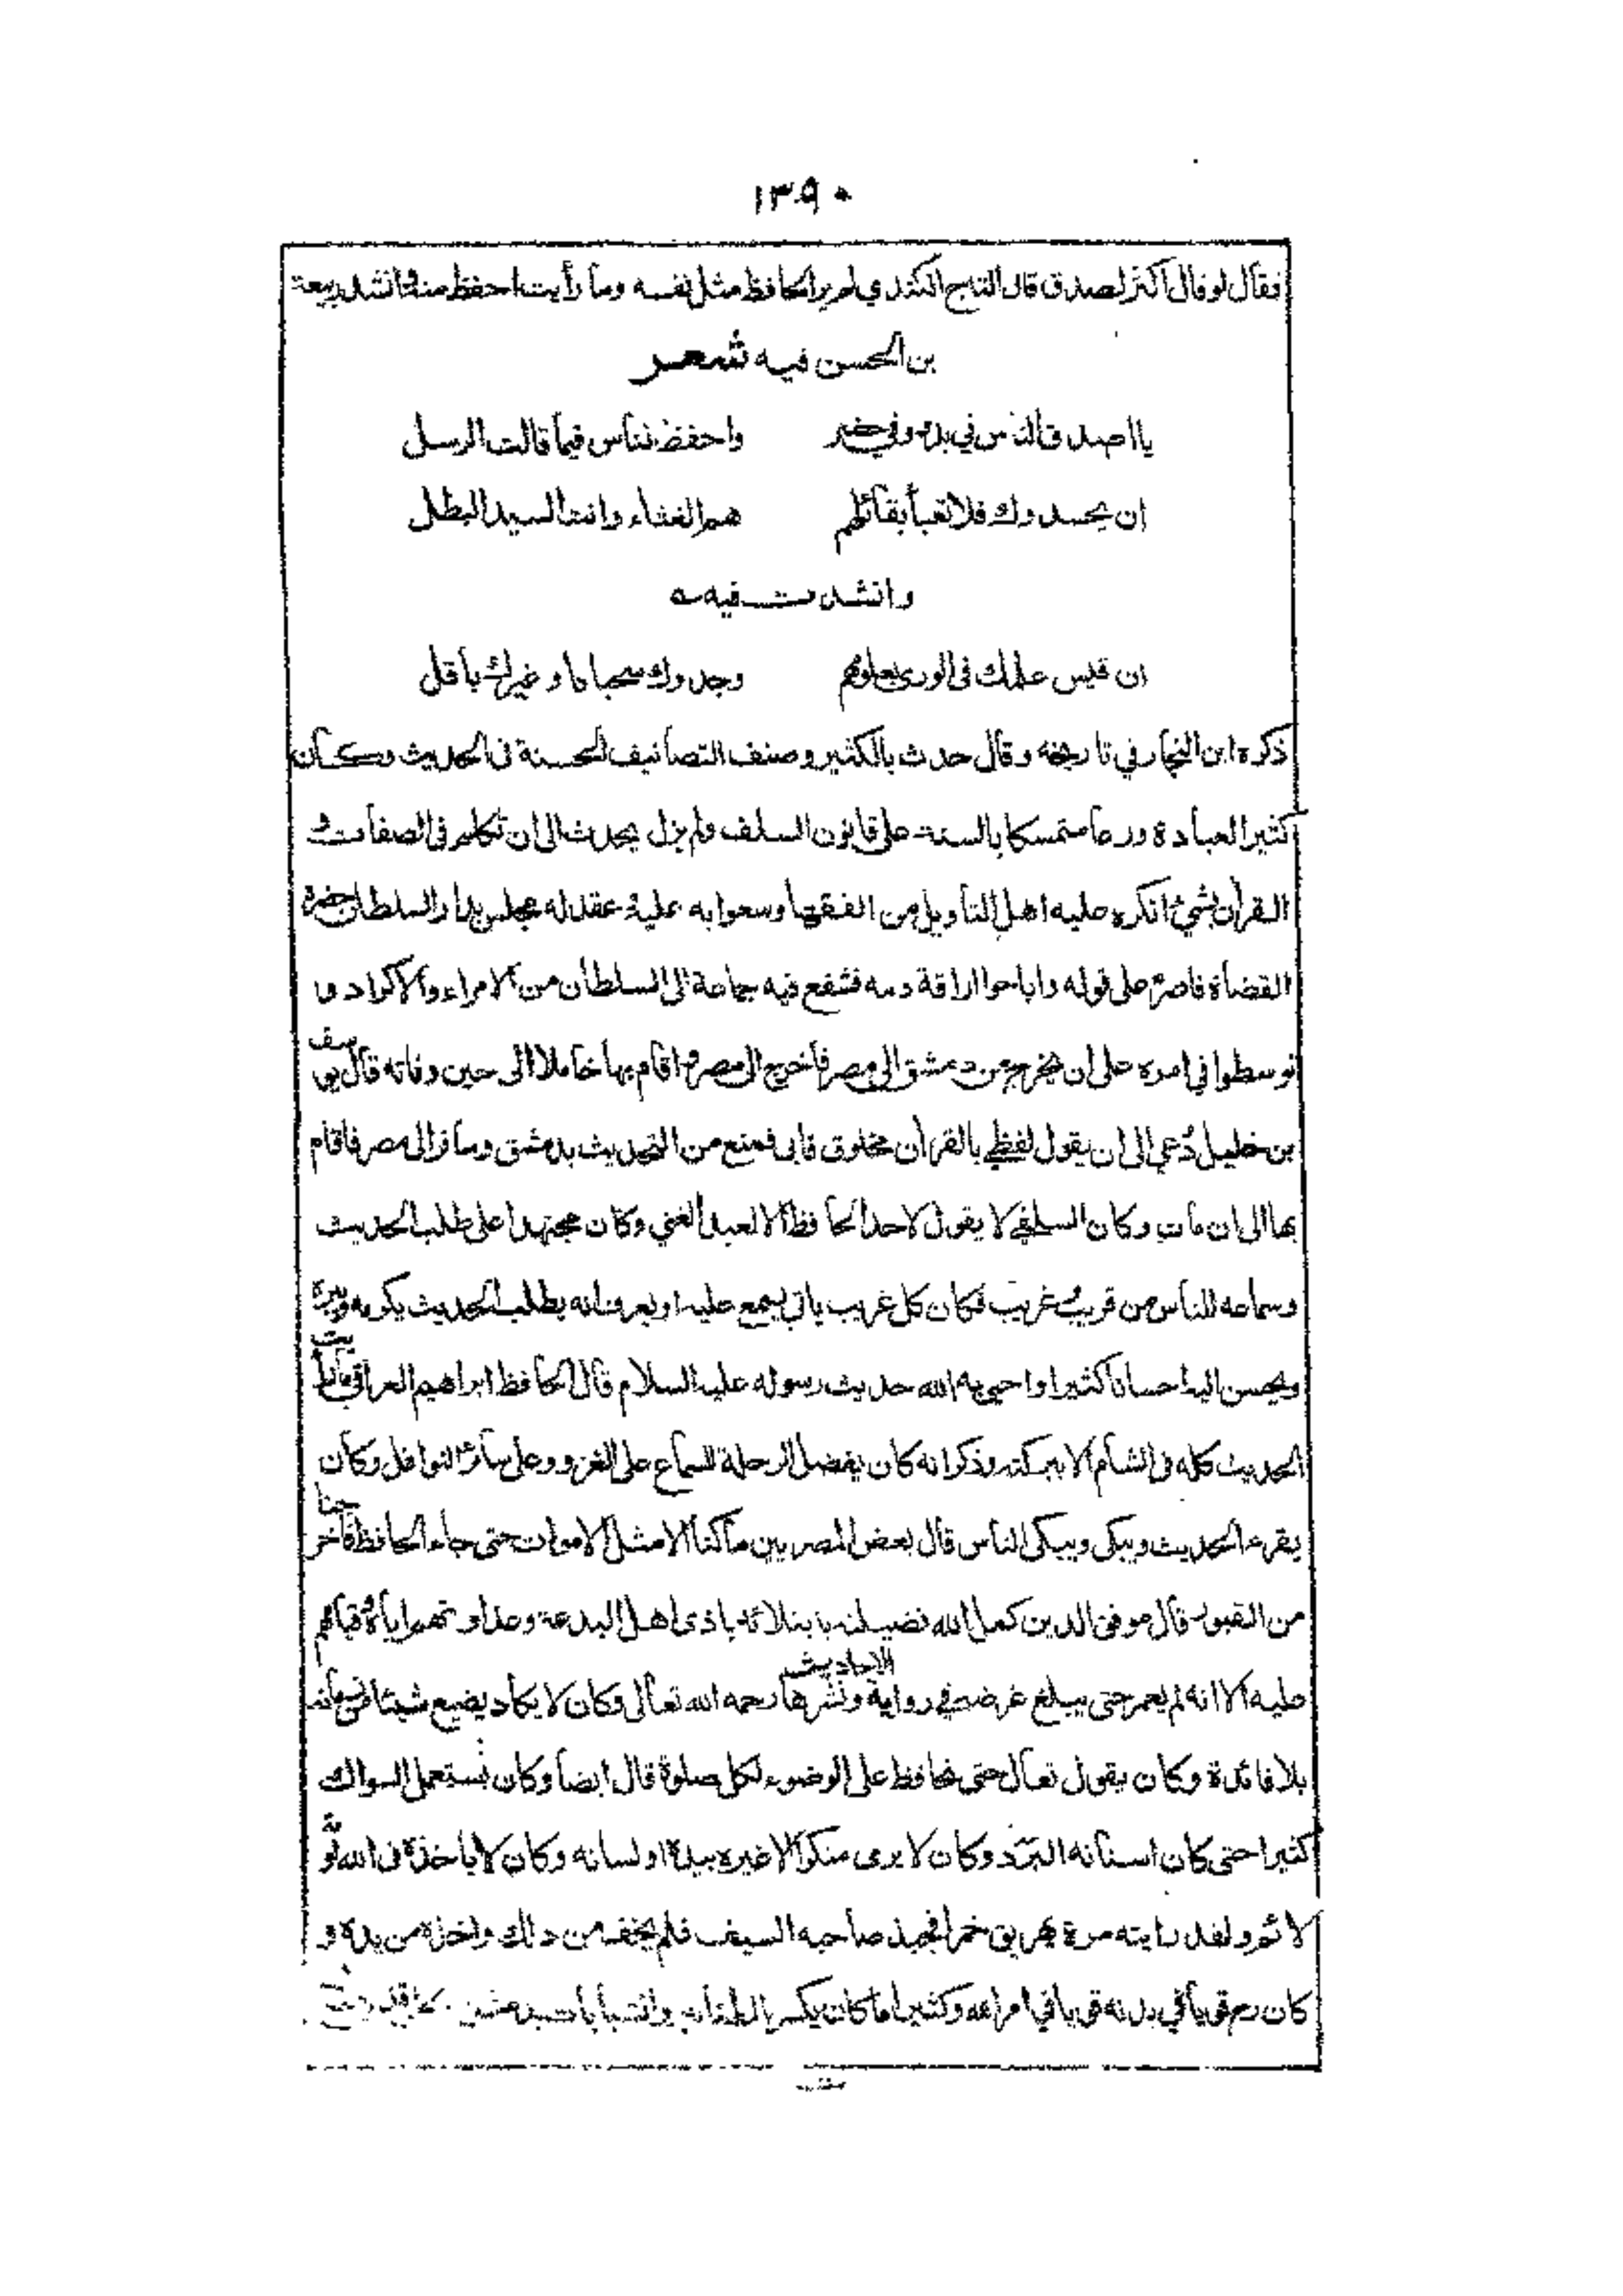 ١٣٩٠
فقال لو قال اكثر لصدق قال التاج الكندي لم ير الحافظ مثل نفسه وما رأيت احفظ منه وانشد ربيعة
بن الحسن فيه شعر
يا اصدق الناس في بدو وفي حضر واحفظ الناس فيما قالت الرسل
ان يحسدوك فلا تعبأ بقائلهم هم الغثاء وانت السيد البطل
وانشدت فيه
ان قيس علمك فى الورى بعلومهم وجدوك سحبانا وغيرك باقل
ذكره ابن النجار في تاريخه وقال حدث بالكثير وصنف التصانيف الحسنة فى الحديث وكان
كثير العبادة ورعا متمسكا بالسنة على قانون السلف ولم يزل يحدث الى ان تكلم فى الصفات و
القرأن بشيئ انكره عليه اهل التأويل من الفقها وسعوا به عليه عقد له مجلس بدار السلطان حضره
القضاة فاصر على قوله واباحوا اراقة دمه فشفع فيه جماعة الى السلطان من الامراء والاكراد و
توسطوا في امره على ان يخرج من دمشق الى مصر فاخرج الى مصر واقام بها خاملا الى حين وفاته قال يوسف
بن خليل دُعي الى ان يقول لفظي بالقرأن مخلوق فابى فمنع من التحديث بدمشق وسافر الى مصر فاقام
بها الى ان مات وكان السلفي لا يقول لاحد الحافظ الا لعبد الغني وكان مجتهدا على طلب الحديث
وسماعه للناس من قريب وغريب فكان كل غريب ياتي يسمع عليه او يعرف انه يطلب الحديث يكرمه ويبره
ويحسن اليه احسانا كثيرا واحيى به الله حديث رسوله عليه السلام قال الحافظ ابراهيم العراقي ما رأيت
الحديث كله فى الشام الا ببركته وذكر انه كان يفضل الرحلة للسماع على الغزو وعلى سائر النوافل وكان
يقرء الحديث ويبكى ويبكى الناس قال بعض المصريين ما كنا الا مثل الاموات حتى جاء الحافظ فاخرجنا
من القبور قال موفق الدين كمل الله فضيلته بابتلائه باذى اهل البدعة وعداوتهم اياه وقيامهم
عليه الا انه لم يعمر حتى يبلغ غرضه في رواية الاحاديث ونشرها رحمه الله تعالى وكان لا يكاد يضيع شيئا من زمانه
بلا فائدة وكان يقول تعال حتى نحافظ على الوضوء لكل صلوة قال ايضا وكان يستعمل السواك
كثيرا حتى كان اسنانه البَرَد وكان لا يرى منكرا الا غيره بيده او لسانه وكان لا ياخذه فى الله لومة
لائم ولقد رايته مرة يهريق خمرا فجبذ صاحبه السيف فلم يخف من ذلك واخذه من يده و
كان رح قويا في بدنه قويا في امر الله وكثيرا ما كان يكسر الطنابير والشبابات بدمشق